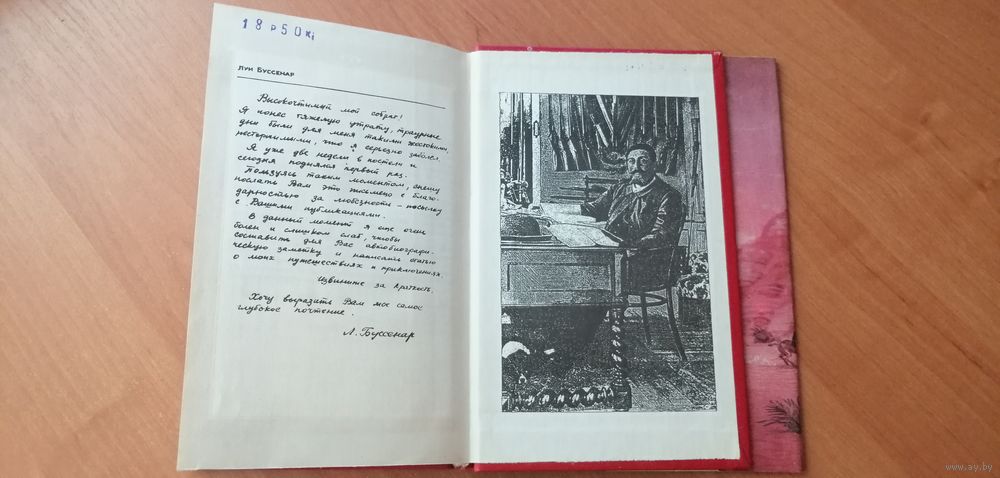 18р50к
ЛУИ БУССЕНАР
Высокочтимый мой собрат!
Я понес тяжелую утрату, траурные
дни были для меня такими жестокими,
нестерпимыми, что я серьезно заболел.
Я уже две недели в постели и
сегодня поднялся первый раз.
Пользуясь таким моментом, спешу
послать Вам это письмецо с благо-
дарностью за любезности – посылку
с Вашими публикациями.
В данный момент я еще очень
болен и слишком слаб, чтобы
составить для Вас автобиографи-
ческую заметку и написать статью
о моих путешествиях и приключениях
Извините за краткость.
Хочу выразить Вам мое самое
глубокое почтение.
Л. Буссенар
www.ay.by